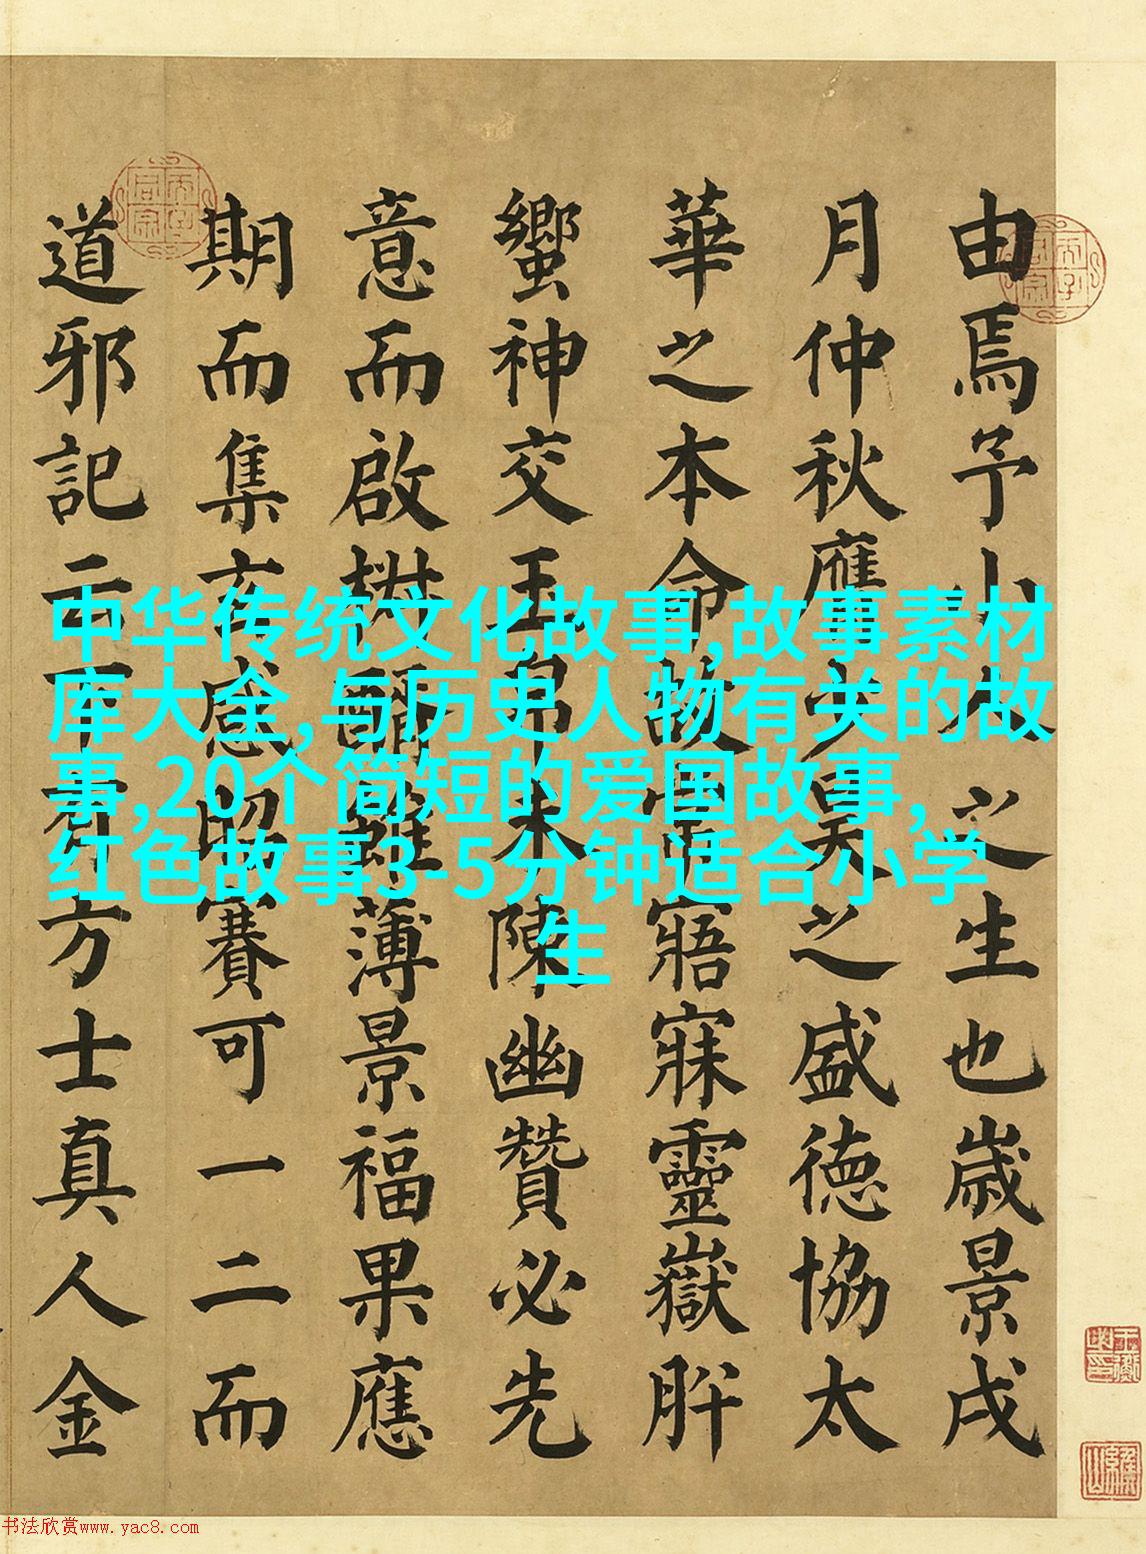 由焉予小人之生也歲景戌
月仲秋應少昊之盛德協太
華之本命故常寤寐靈嶽肸
蠁神交玉帛未陳幽贊必先
意而啟椒醑雖薄景福果應
期而集言感昭賽可一二而
道邪記云下有方士真人金
中华传统文化故事,故事素材
库大全,与历史人物有关的故
事,20个简短的爱国故事,
红色故事3-5分钟适合小学
生
书法欣赏www.yac8.com